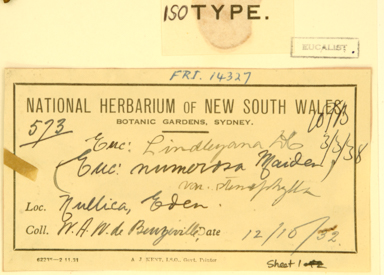 ISOTYPE.
EUCALIST.
FRI. 14327
NATIONAL HERBARIUM OF NEW SOUTH WALES
BOTANIC GARDENS, SYDNEY.
573
3/5/38
Euc: Lindleyana DC
(Euc: numerosa Maiden)
var. stenophylla
Loc. Nullica, Eden.
Coll. W. A. W. de Beuzeville Date 12/10/32.
A. J. KENT, I.S.O., Govt. Printer
Sheet 1